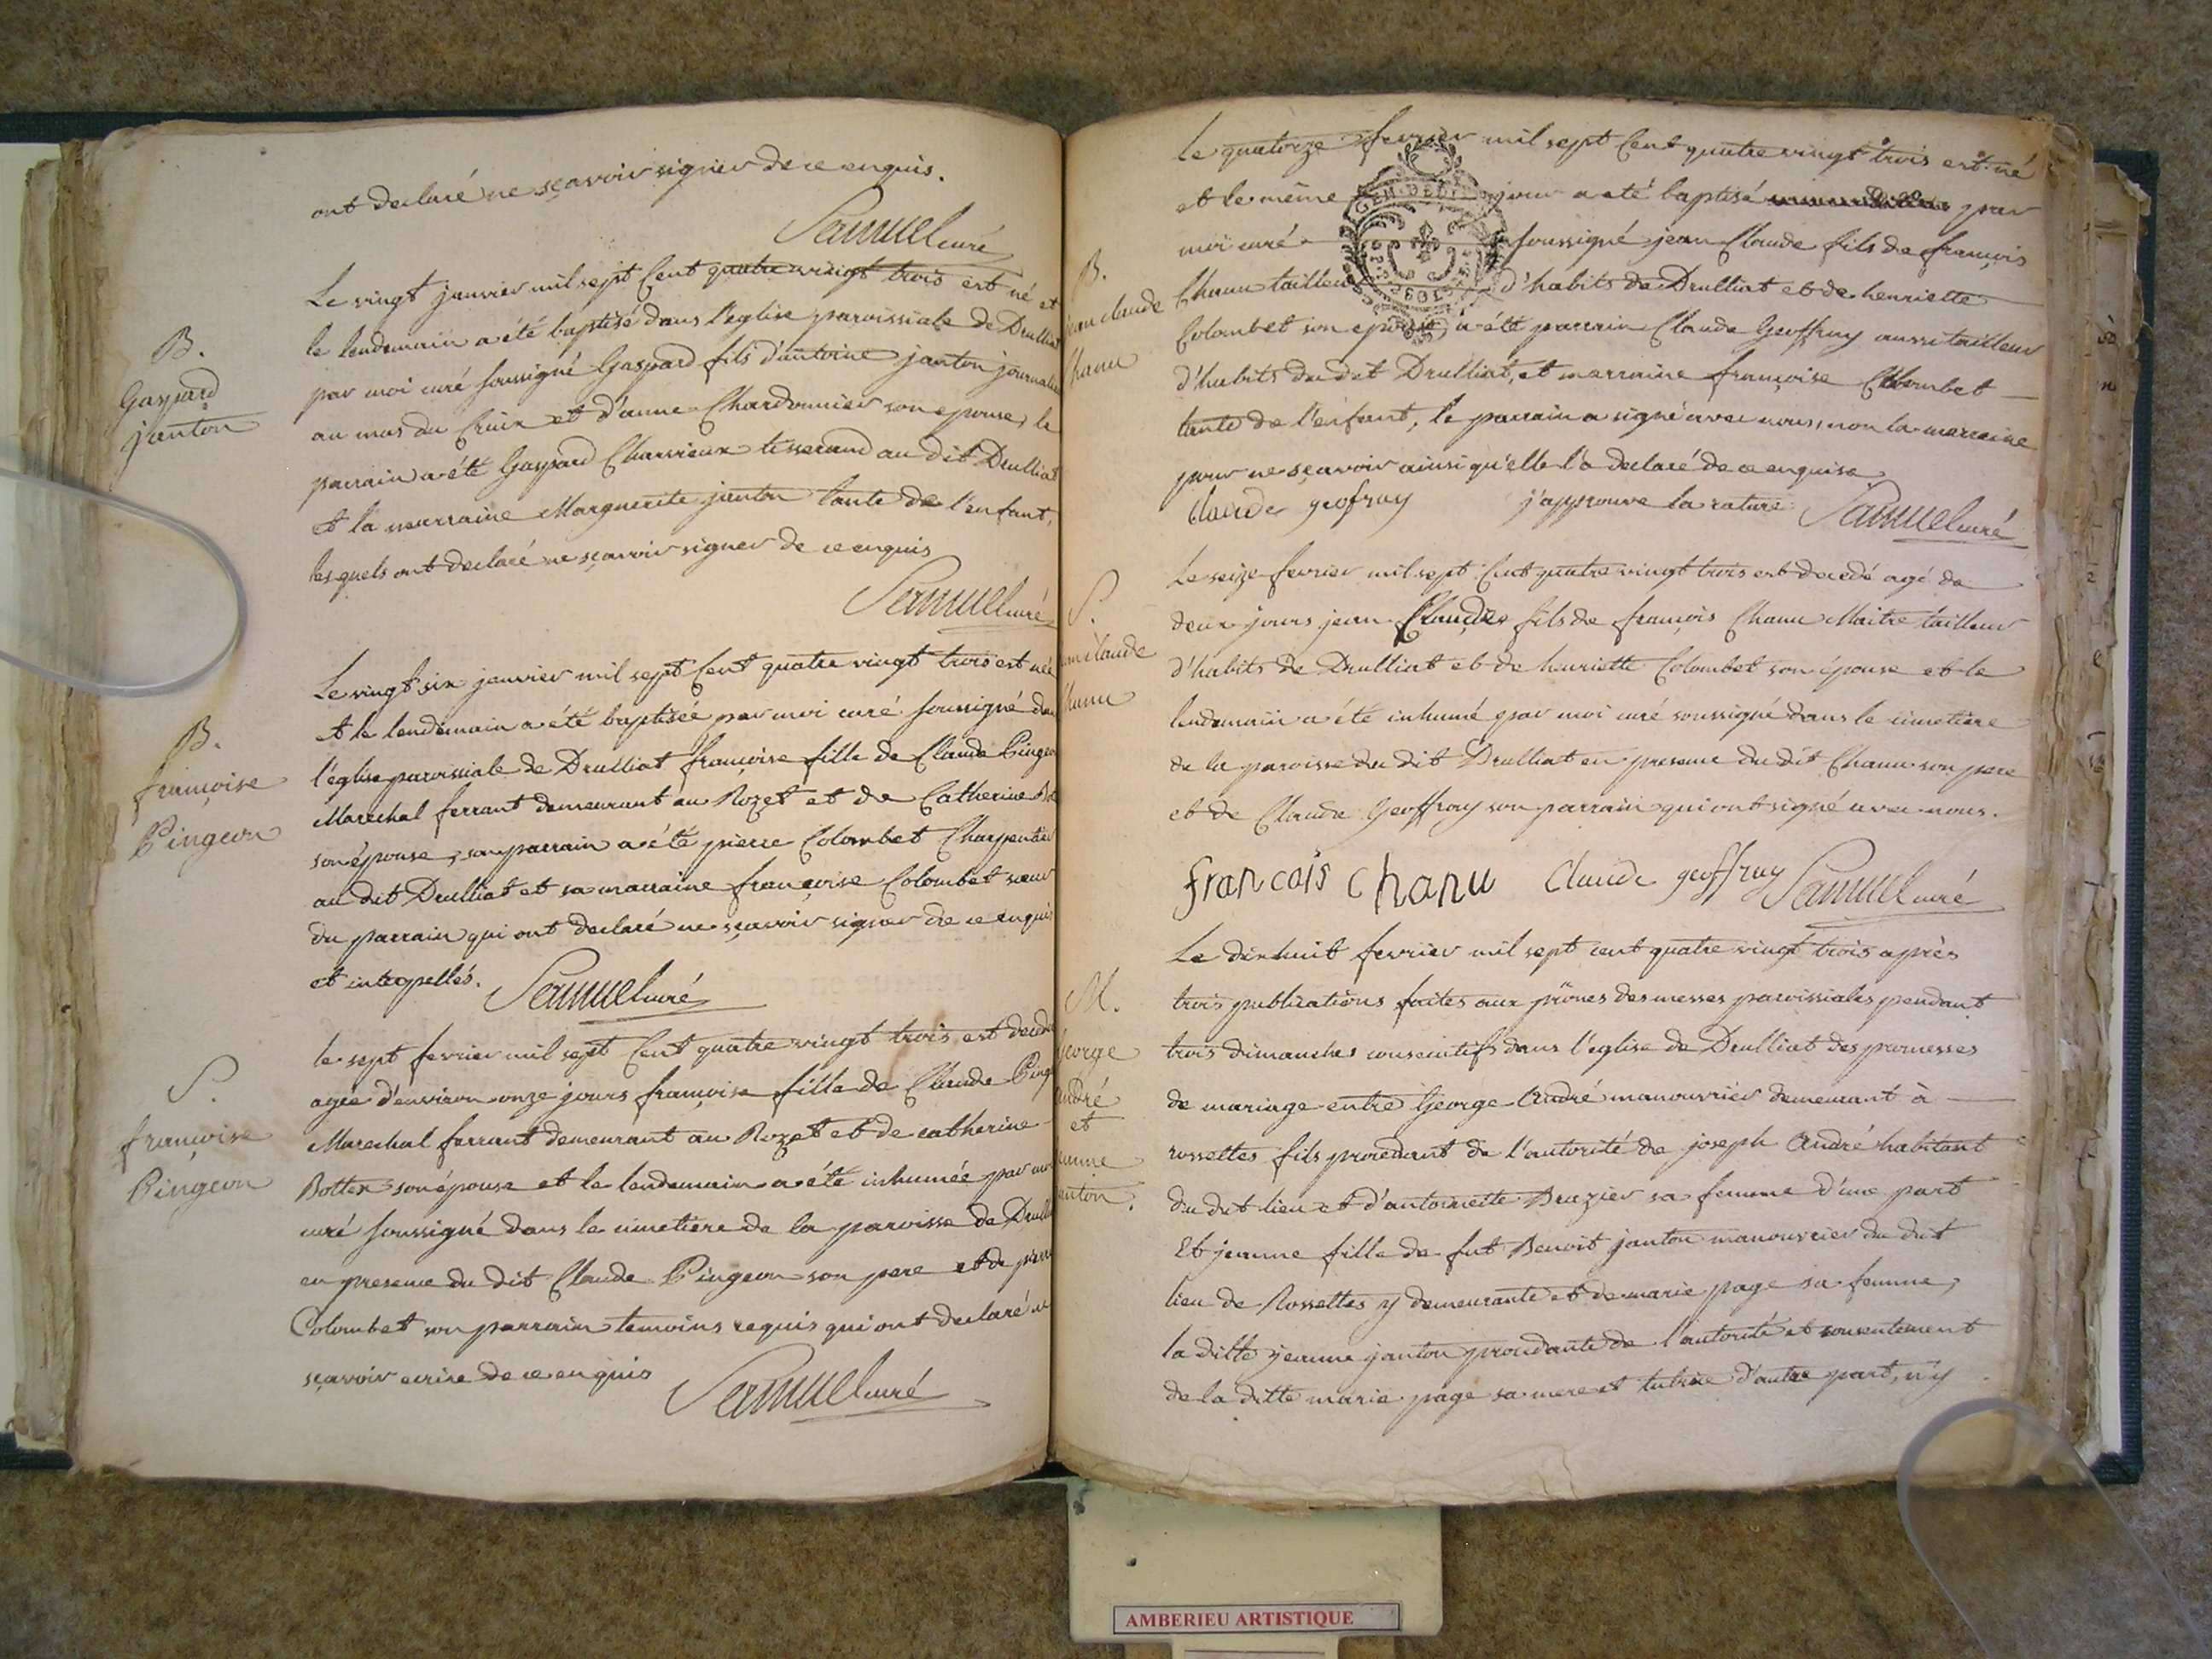 ont declaré ne sçavoir signer de ce enquis.
Samuel curé
B.
Gaspard
janton
Le vingt janvier mil sept Cent quatre vingt trois est né et
le lendemain a été baptisé dans l'eglise paroissiale de Drulliat
par moi curé soussigné Gaspard fils d'antoine janton journalier
au mas du Cruix et d'anne Chardonnier son epouse, le
parrain a été Gaspard Charvieux tisserand au dit Drulliat
et la marraine Marguerite janton tante de l'enfant,
lesquels ont declaré ne sçavoir signer de ce enquis
Samuel curé
B.
françoise
Pingeon
Le vingt six janvier mil sept Cent quatre vingt trois est née
et le lendemain a été baptisée par moi curé soussigné da
l'église paroissiale de Drulliat françoise fille de Claude Pingeon
Marechal ferrant demeurant au Rozet et de Catherine Bot
son épouse, son parrain a été pierre Colombet Charpentier
au dit Drulliat et sa marraine françoise Colombet sœur
du parrain qui ont declaré ne sçavoir signer de ce enquis
et interpellés.
Samuel curé
S.
françoise
Pingeon
le sept fevrier mil sept Cent quatre vingt trois est decedé
agée d'environ onze jours françoise fille de Claude Ping
Marechal ferrant demeurant au Rozet et de catherine
Bottex son épouse et le lendemain a été inhumée par moi
curé soussigné dans le cimetiere de la paroisse de Drull
en presence du dit Claude Pingeon son pere et de pierre
Colombet son parrain temoins requis qui ont declaré ne
sçavoir ecrire de ce enquis
Samuel curé
B.
jean claude
Chanu
Le quatorze fevrier mil sept Cent quatre vingt trois est né
et le même jour a été baptisé par
moi curé soussigné jean Claude fils de françois
Chanu tailleur d'habits de Drulliat et de henriette
Colombet son epouse, a été parrain Claude Geoffray aussi tailleur
d'habits du dit Drulliat, et marraine françoise Colombet
tante de l'enfant, le parrain a signé avec nous, non la marraine
pour ne sçavoir ainsi qu'elle l'a declaré de ce enquise.
Claude geofray j'approuve la rature Samuel curé
S.
jean claude
Chanu
Le seize fevrier mil sept Cent quatre vingt trois est decedé agé de
deux jours jean Claude fils de françois Chanu Maitre tailleur
d'habits de Drulliat et de henriette Colombet son épouse et le
lendemain a été inhumé par moi curé soussigné dans le cimetiere
de la paroisse du dit Drulliat en presence du dit Chanu son pere
et de Claude Geoffray son parrain qui ont signé avec nous.
francois chanu Claude geoffray Samuel curé
M.
George
André
et
jeanne
janton.
Le dixhuit fevrier mil sept cent quatre vingt trois après
trois publications faites aux prônes des messes paroissiales pendant
trois dimanches consecutifs dans l'eglise de Drulliat des promesses
de mariage entre George André manouvrier demeurant à
rossettes fils procedant de l'autorité de joseph André habitant
du dit lieu et d'antoinette Brazier sa femme d'une part
Et jeanne fille de fut Benoit janton manouvrier du dit
lieu de Rossettes y demeurante et de marie page sa femme,
la ditte jeanne janton procedante de l'autorité et consentement
de la ditte marie page sa mere et tutrice d'autre part, n'y
AMBERIEU ARTISTIQUE